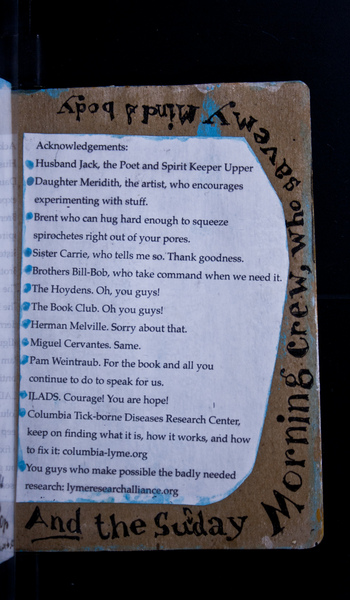 Acknowledgements:
Husband Jack, the Poet and Spirit Keeper Upper
Daughter Meredith, the artist, who encourages
experimenting with stuff.
Brent who can hug hard enough to squeeze
spirochetes right out of your pores.
Sister Carrie, who tells me so. Thank goodness.
Brothers Bill-Bob, who take command when we need it.
The Hoydens. Oh, you guys!
The Book Club. Oh you guys!
Herman Melville. Sorry about that.
Miguel Cervantes. Same.
Pam Weintraub. For the book and all you
continue to do to speak for us.
ILADS. Courage! You are hope!
Columbia Tick-borne Diseases Research Center,
keep on finding what it is, how it works, and how
to fix it: columbia-lyme.org
You guys who make possible the badly needed
research: lymeresearchalliance.org
And the Suday
Morning Crew, who save my
Mind & body